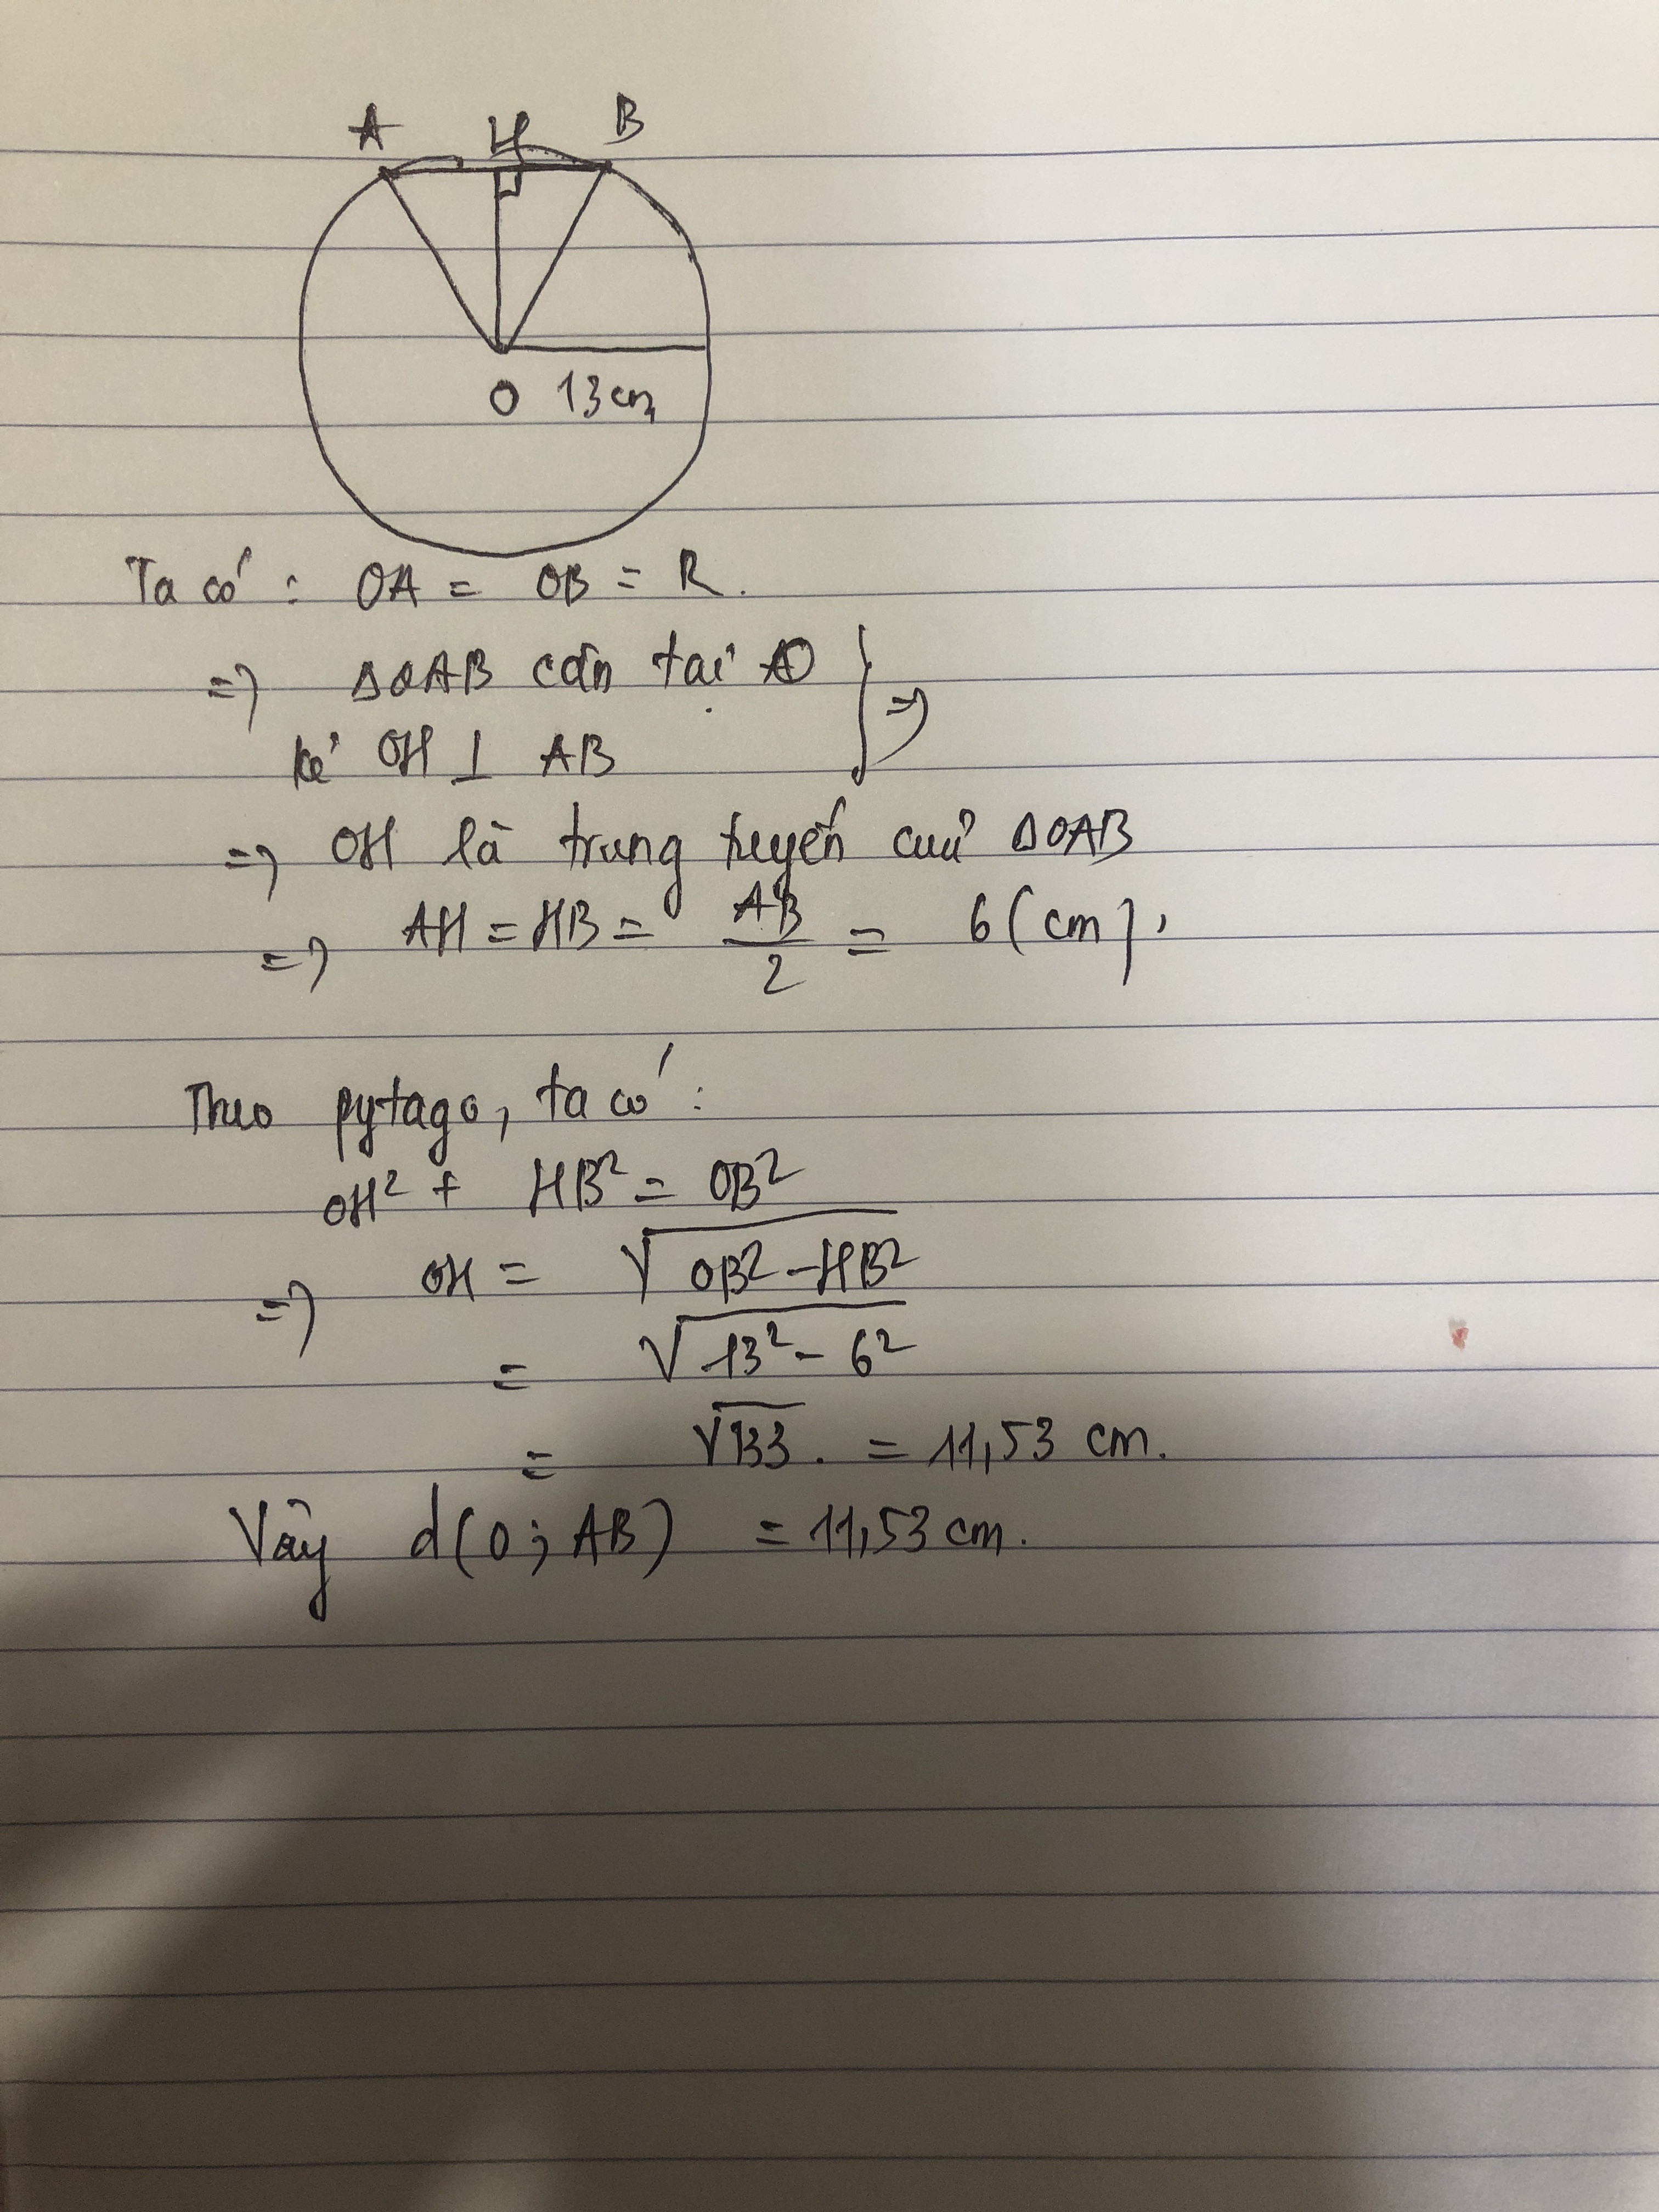 A H B
O 13cm
Ta có : OA = OB = R.
=> ΔOAB cân tại O } =>
kẻ OH ⊥ AB
=> OH là trung tuyến cuả ΔOAB
=> AH = HB = AB/2 = 6 (cm).
Theo pytago, ta có :
OH² + HB² = OB²
=> OH = √(OB² - HB²)
= √(13² - 6²)
= √133. = 11,53 cm.
Vậy d(O; AB) = 11,53 cm.